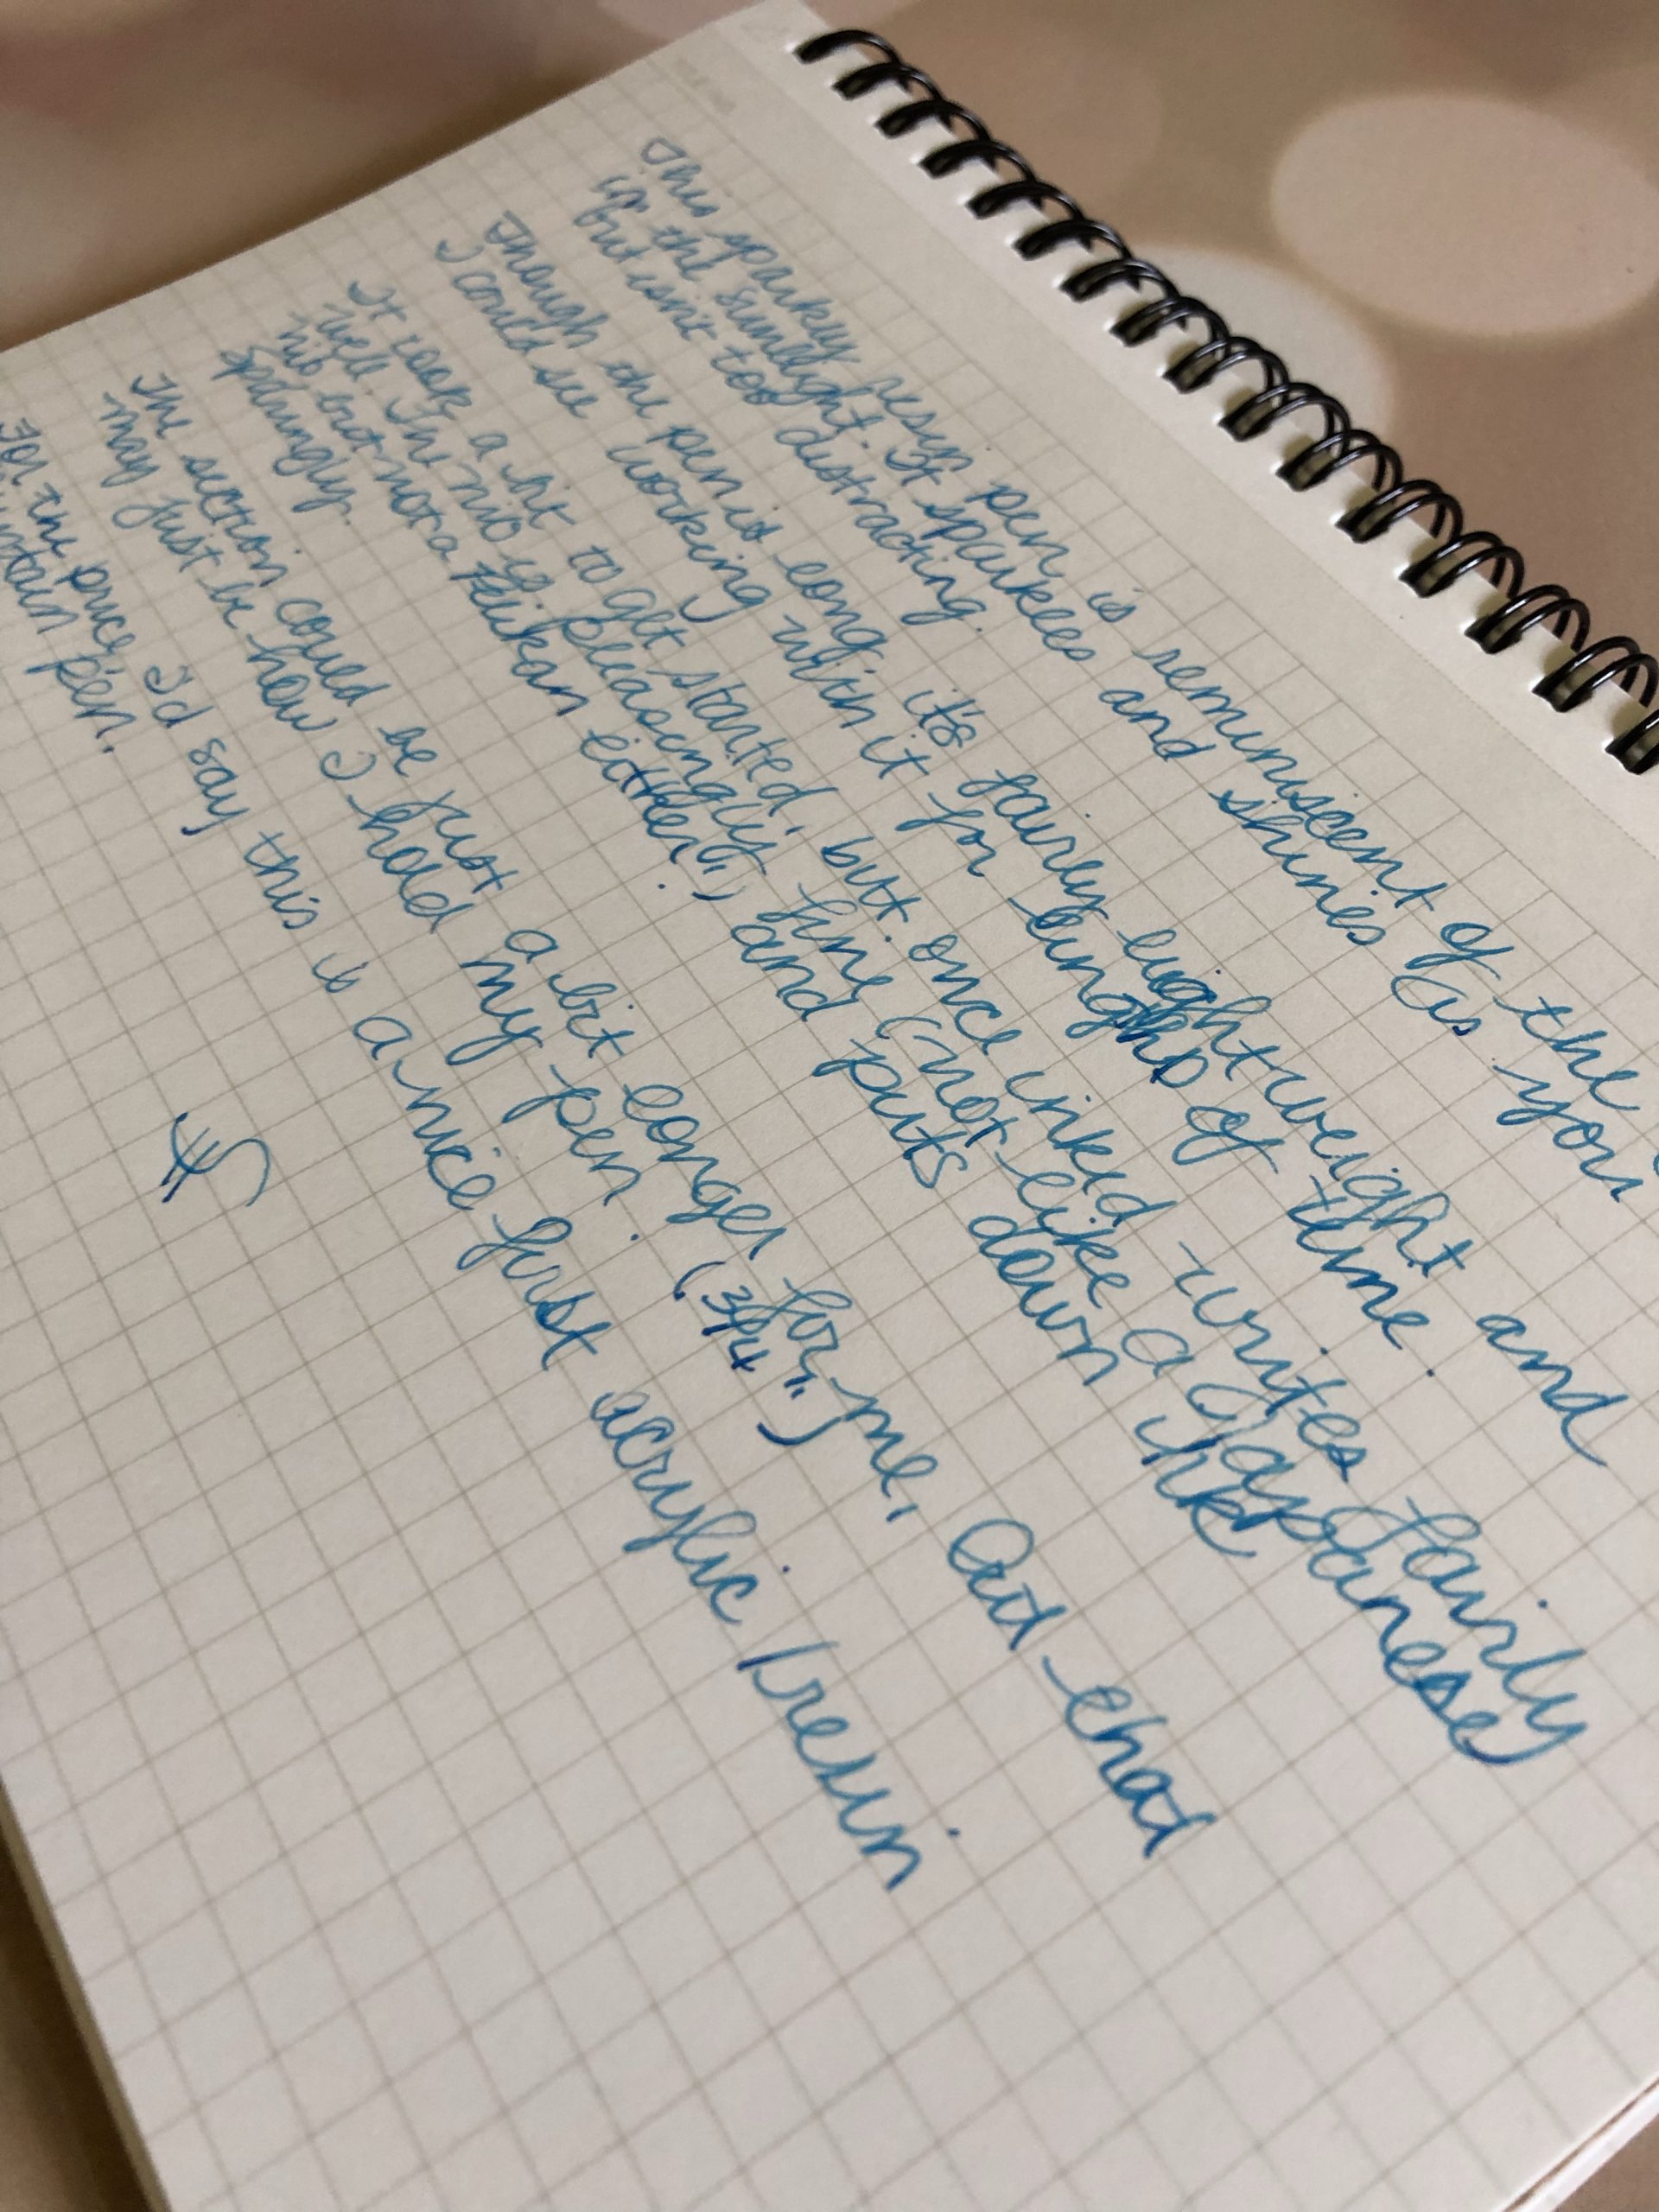 This sparkly resin pen is reminiscent of the
in the sunlight. It sparkles and shines as you
but isn't too distracting.
Though the pen is long, it's fairly lightweight and
I could see working with it for lengths of time.
It took a bit to get started, but once inked writes fairly
well. The nib is pleasingly fine (not like a Japanese
nib but not a Pelikan either!) and puts down ink
sparingly.
The section could be just a bit longer for me, but that
may just be how I hold my pen. (3/4".)
For the price, I'd say this is a nice first acrylic/resin
fountain pen.